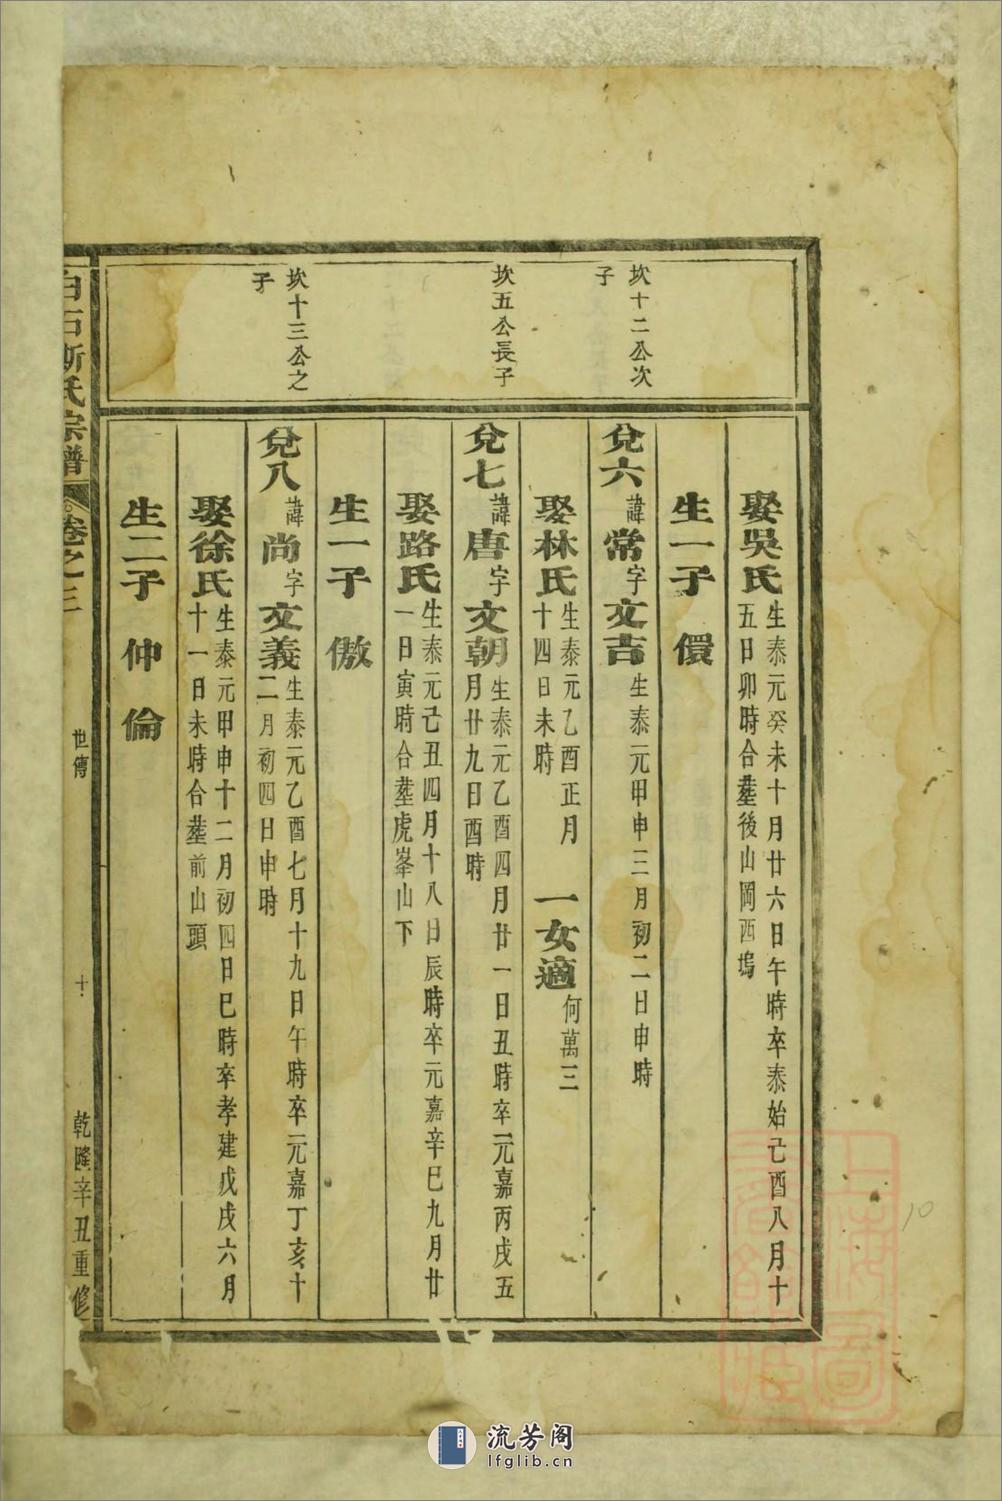 坎十二公次
子
坎五公長子
坎十三公之
子
娶吳氏 生泰元癸未十月廿六日午時卒泰始己酉八月十
五日卯時合塟後山岡西塢
生一子 儇
兌六 諱常字文吉 生泰元甲申三月初二日申時
娶林氏 生泰元乙酉正月
十四日未時 一女適 何萬三
兌七 諱唐字文朝 生泰元乙酉四月廿一日丑時卒元嘉丙戌五
月廿九日酉時
娶路氏 生泰元己丑四月十八日辰時卒元嘉辛巳九月廿
一日寅時合塟虎峯山下
生一子 傲
兌八 諱尚字文義 生泰元乙酉七月十九日午時卒元嘉丁亥十
二月初四日申時
娶徐氏 生泰元甲申十二月初四日巳時卒孝建戊戌六月
十一日未時合塟前山頭
生二子 仲 倫
白石斯氏宗譜 卷之三 世傳 十 乾隆辛丑重修
10
流芳阁
lfglib.cn